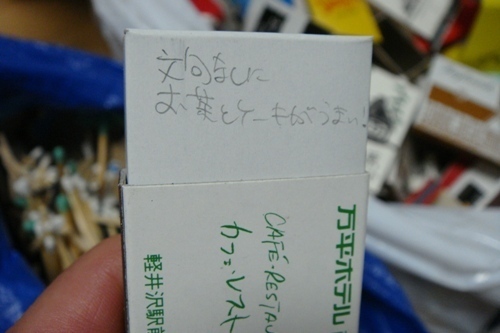 文句なしに
お葉とケーキがうまい!
万平ホテル
CAFÉ・RESTAU
カフェ・レスト
軽井沢駅前